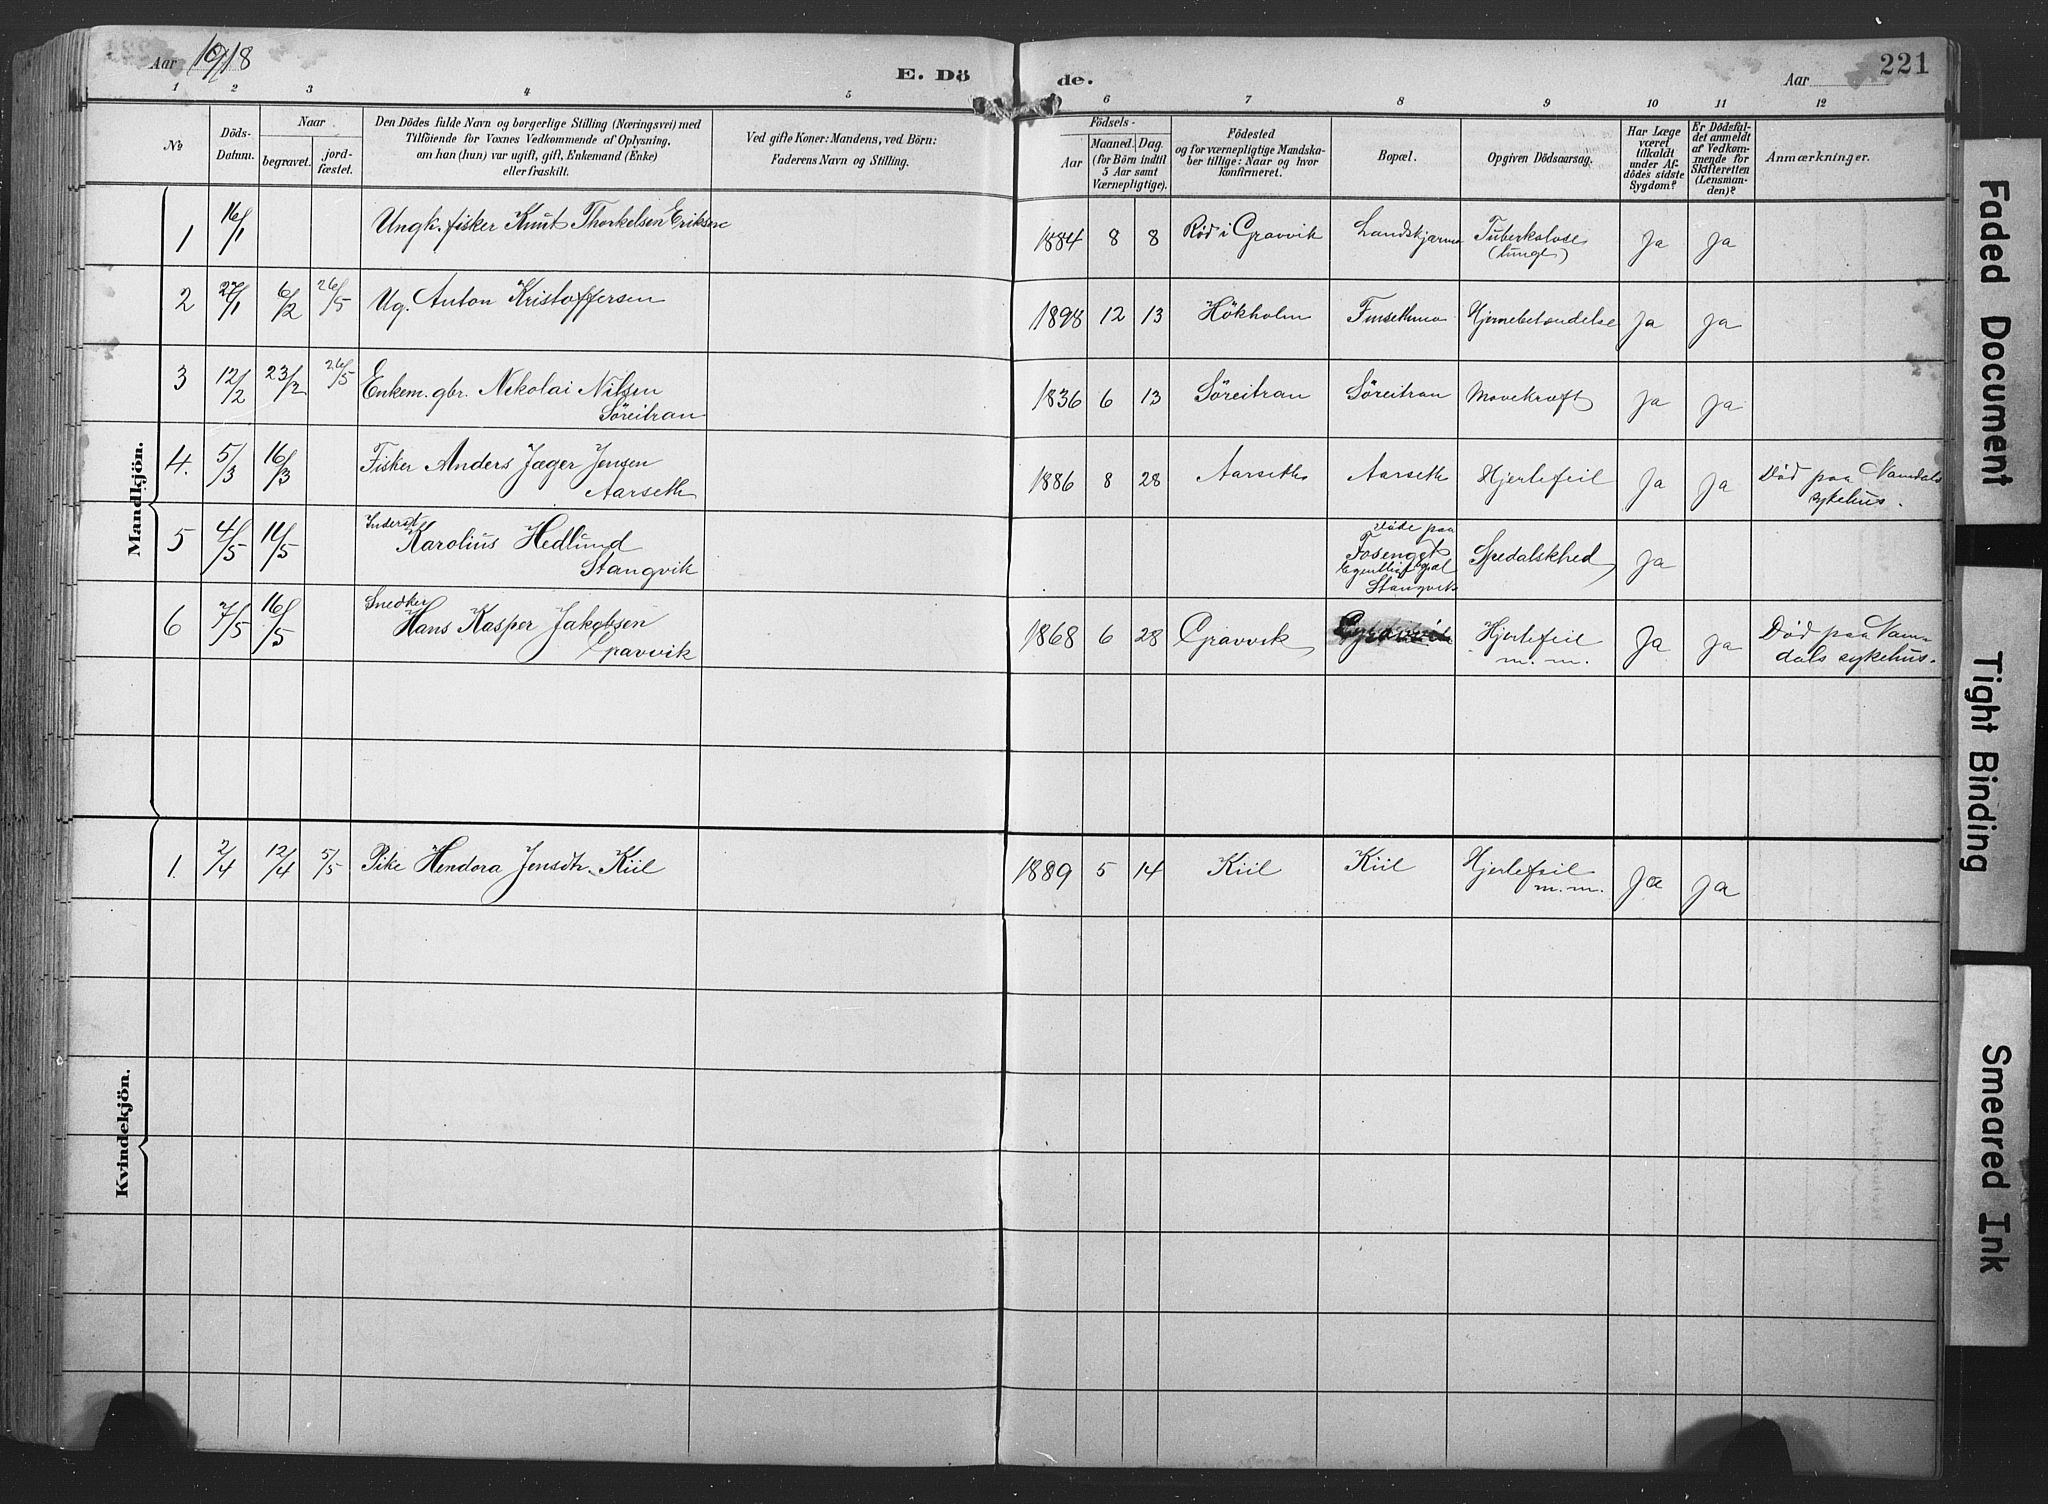 Aar 1918
E. Dö
de.
Aar
221
1 2 3 4 5 6 7 8 9 10 11 12
No
Döds-
Datum.
Naar
begravet.
jord-
fæstet.
Den Dödes fulde Navn og borgerlige Stilling (Næringsvei) med
Tilföiende för Voxnes Vedkommende af Oplysning,
om han (hun) var ugift, gift, Enkemand (Enke)
eller fraskilt.
Ved gifte Koner: Mandens, ved Börn:
Faderens Navn og Stilling.
Födsels-
Aar
Maaned. Dag.
(for Börn indtil
5 Aar samt
Værnepligtige).
Födested
og for værnepligtige Mandska-
ber tillige: Naar og hvor
konfirmeret.
Bopæl.
Opgiven Dödsaarsag.
Har Læge
været
tilkaldt
under Af-
dödes sidste
Sygdom?
Er Dödsfal-
det anmeldt
af Vedkom-
mende for
Skifteretten
(Lensman-
den)?
Anmærkninger.
Mandkjön.
1 16/1 Ungk. fisker Knut Thorkelsen Eriksen 1884 8 8 Rød i Gravvik Tuberkulose Ja Ja
(lunge)
2 27/1 6/2 26/5 Ug. Anton Kristoffersen 1898 12 13 Hökholm Hjernebetændelse Ja Ja
3 12/2 23/2 26/5 Enkem. gbr. Nikolai Nilsen 1836 6 13 Søreitran Søreitran Mavekræft Ja Ja
Søreitran
4. 5/3 16/3 Fisker Anders Jæger Jensen 1886 8 28 Aarseth Aarseth Hjertefeil Ja Ja Død paa Namdals
Aarseth sykehus.
5 4/5 14/5 Inderst Karolius Hedlund Døde paa
Stangvik Fosenget Spedalskhed Ja
Egentligt
Stangvik
6 7/5 16/5 Snedker
Hans Kasper Jakobsen 1868 6 28 Gravvik Gravvik Hjertefeil Ja Ja Død paa Nam-
Gravvik m.m. dals sykehus.
Kvindekjön.
1. 2/4 12/4 5/5 Pike Hendora Jensdtr. Kiil 1889 5 14 Kiil Kiil Hjertefeil Ja Ja
m.m.
Faded Document
Tight Binding
Smeared Ink